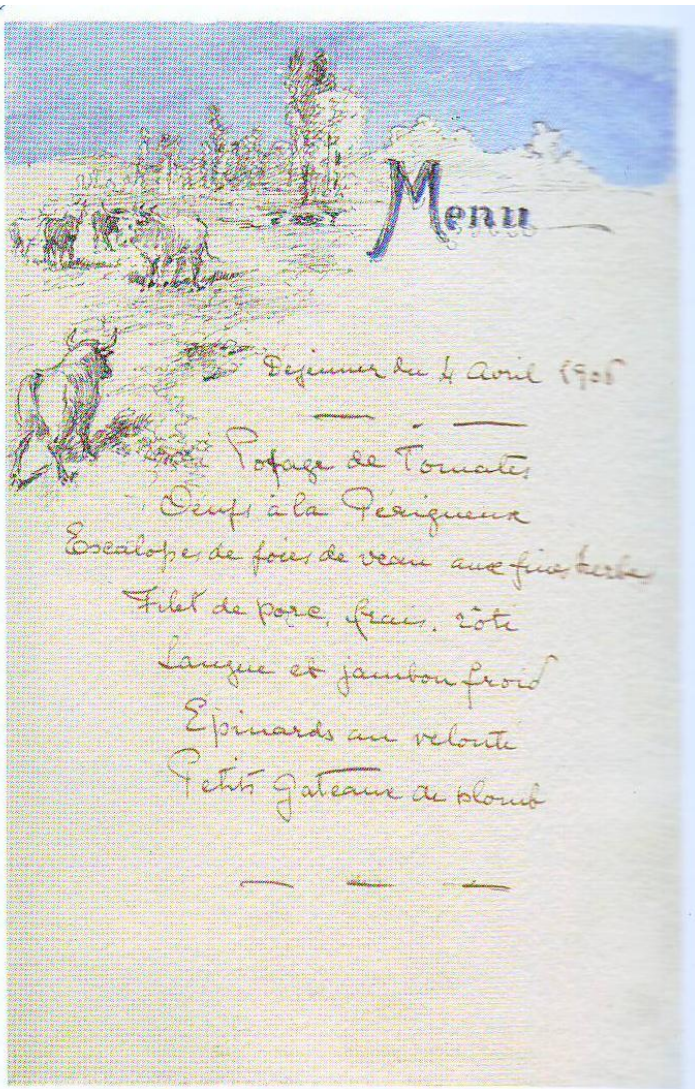 Menu
Dejeuner du 4 Avril
Potage de Tomates
Oeufs à la Périgueux
Escalopes de foies de veau aux fines herbes
Filet de porc, frais, rôti
Langue et jambon froid
Epinards au velouté
Petits Gateaux de plomb